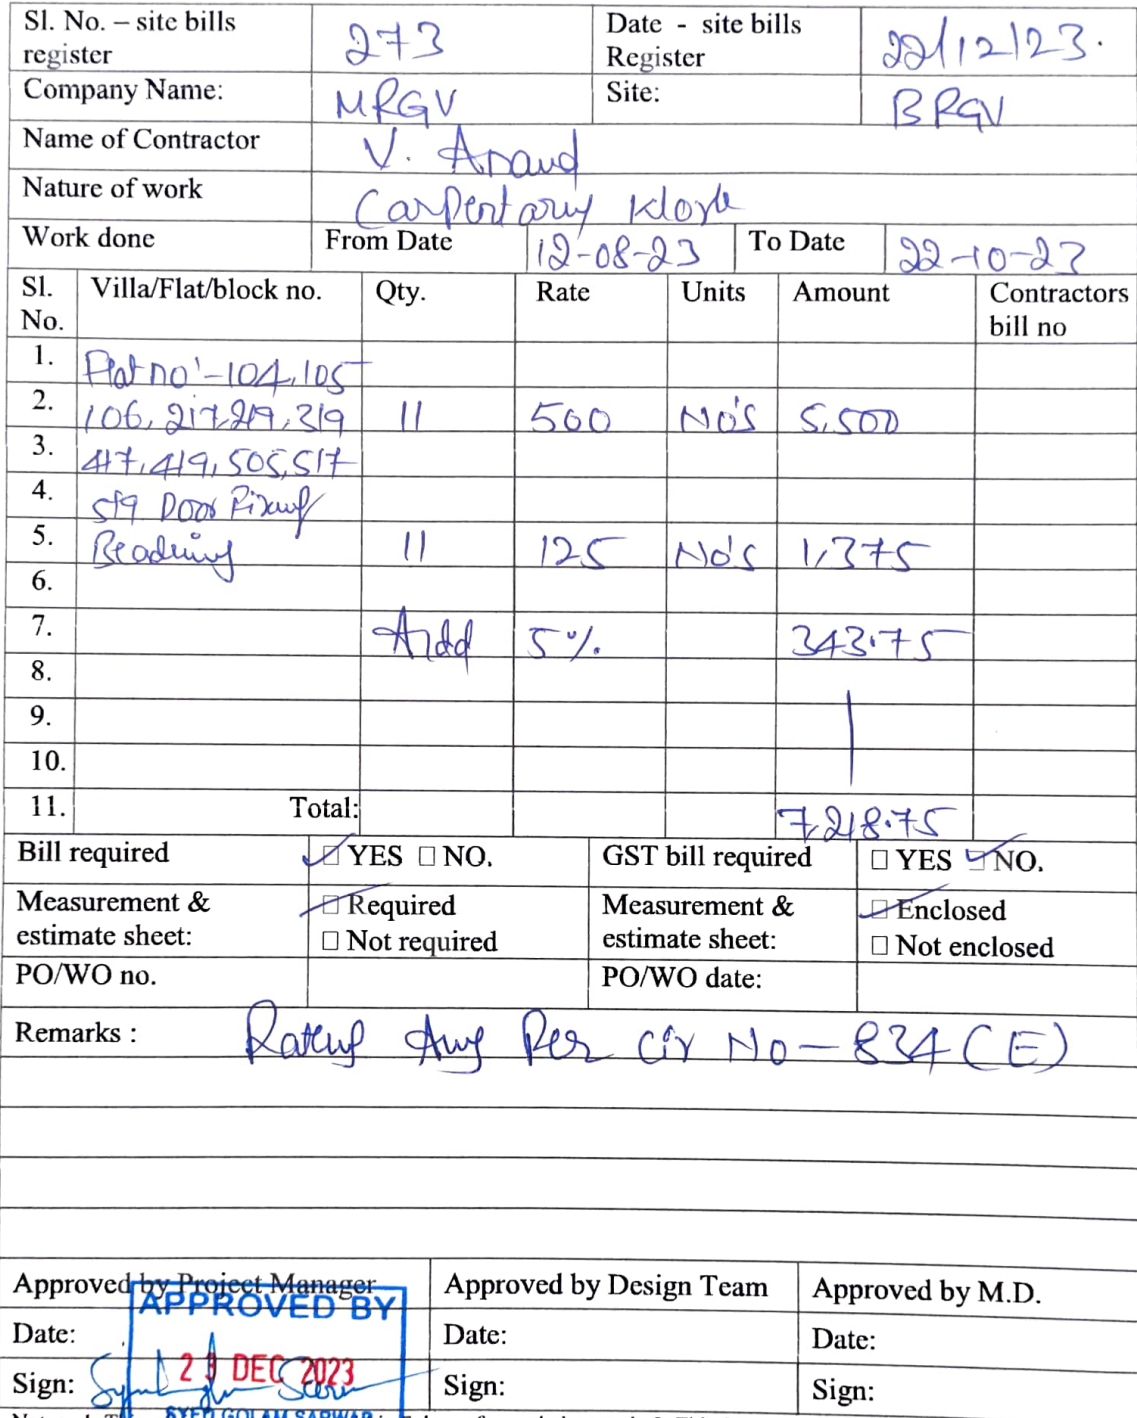 Sl. No. – site bills register 273 Date - site bills Register 22/12/23.
Company Name: MRGV Site: BRGV
Name of Contractor V. Anand
Nature of work Carpentary Work
Work done From Date 12-08-23 To Date 22-10-23
Sl. No. Villa/Flat/block no. Qty. Rate Units Amount Contractors bill no
1. Flat no'-104,105
2. 106, 217,219,319 11 500 No's 5,500
3. 417,419,505,517
4. 519 Door Fixing
5. Beading 11 125 No's 1,375
6.
7. Add 5% 343.75
8.
9.
10.
11. Total: 7,218.75
Bill required ☑ YES □ NO. GST bill required □ YES ☑ NO.
Measurement & estimate sheet: ☑ Required □ Not required Measurement & estimate sheet: ☑ Enclosed □ Not enclosed
PO/WO no. PO/WO date:
Remarks : Per Cir No-834(E)
Approved by Project Manager Approved by Design Team Approved by M.D.
APPROVED BY
Date: Date: Date:
DEC 2023
Sign: Sign: Sign:
SYED GOLAM SARWAR